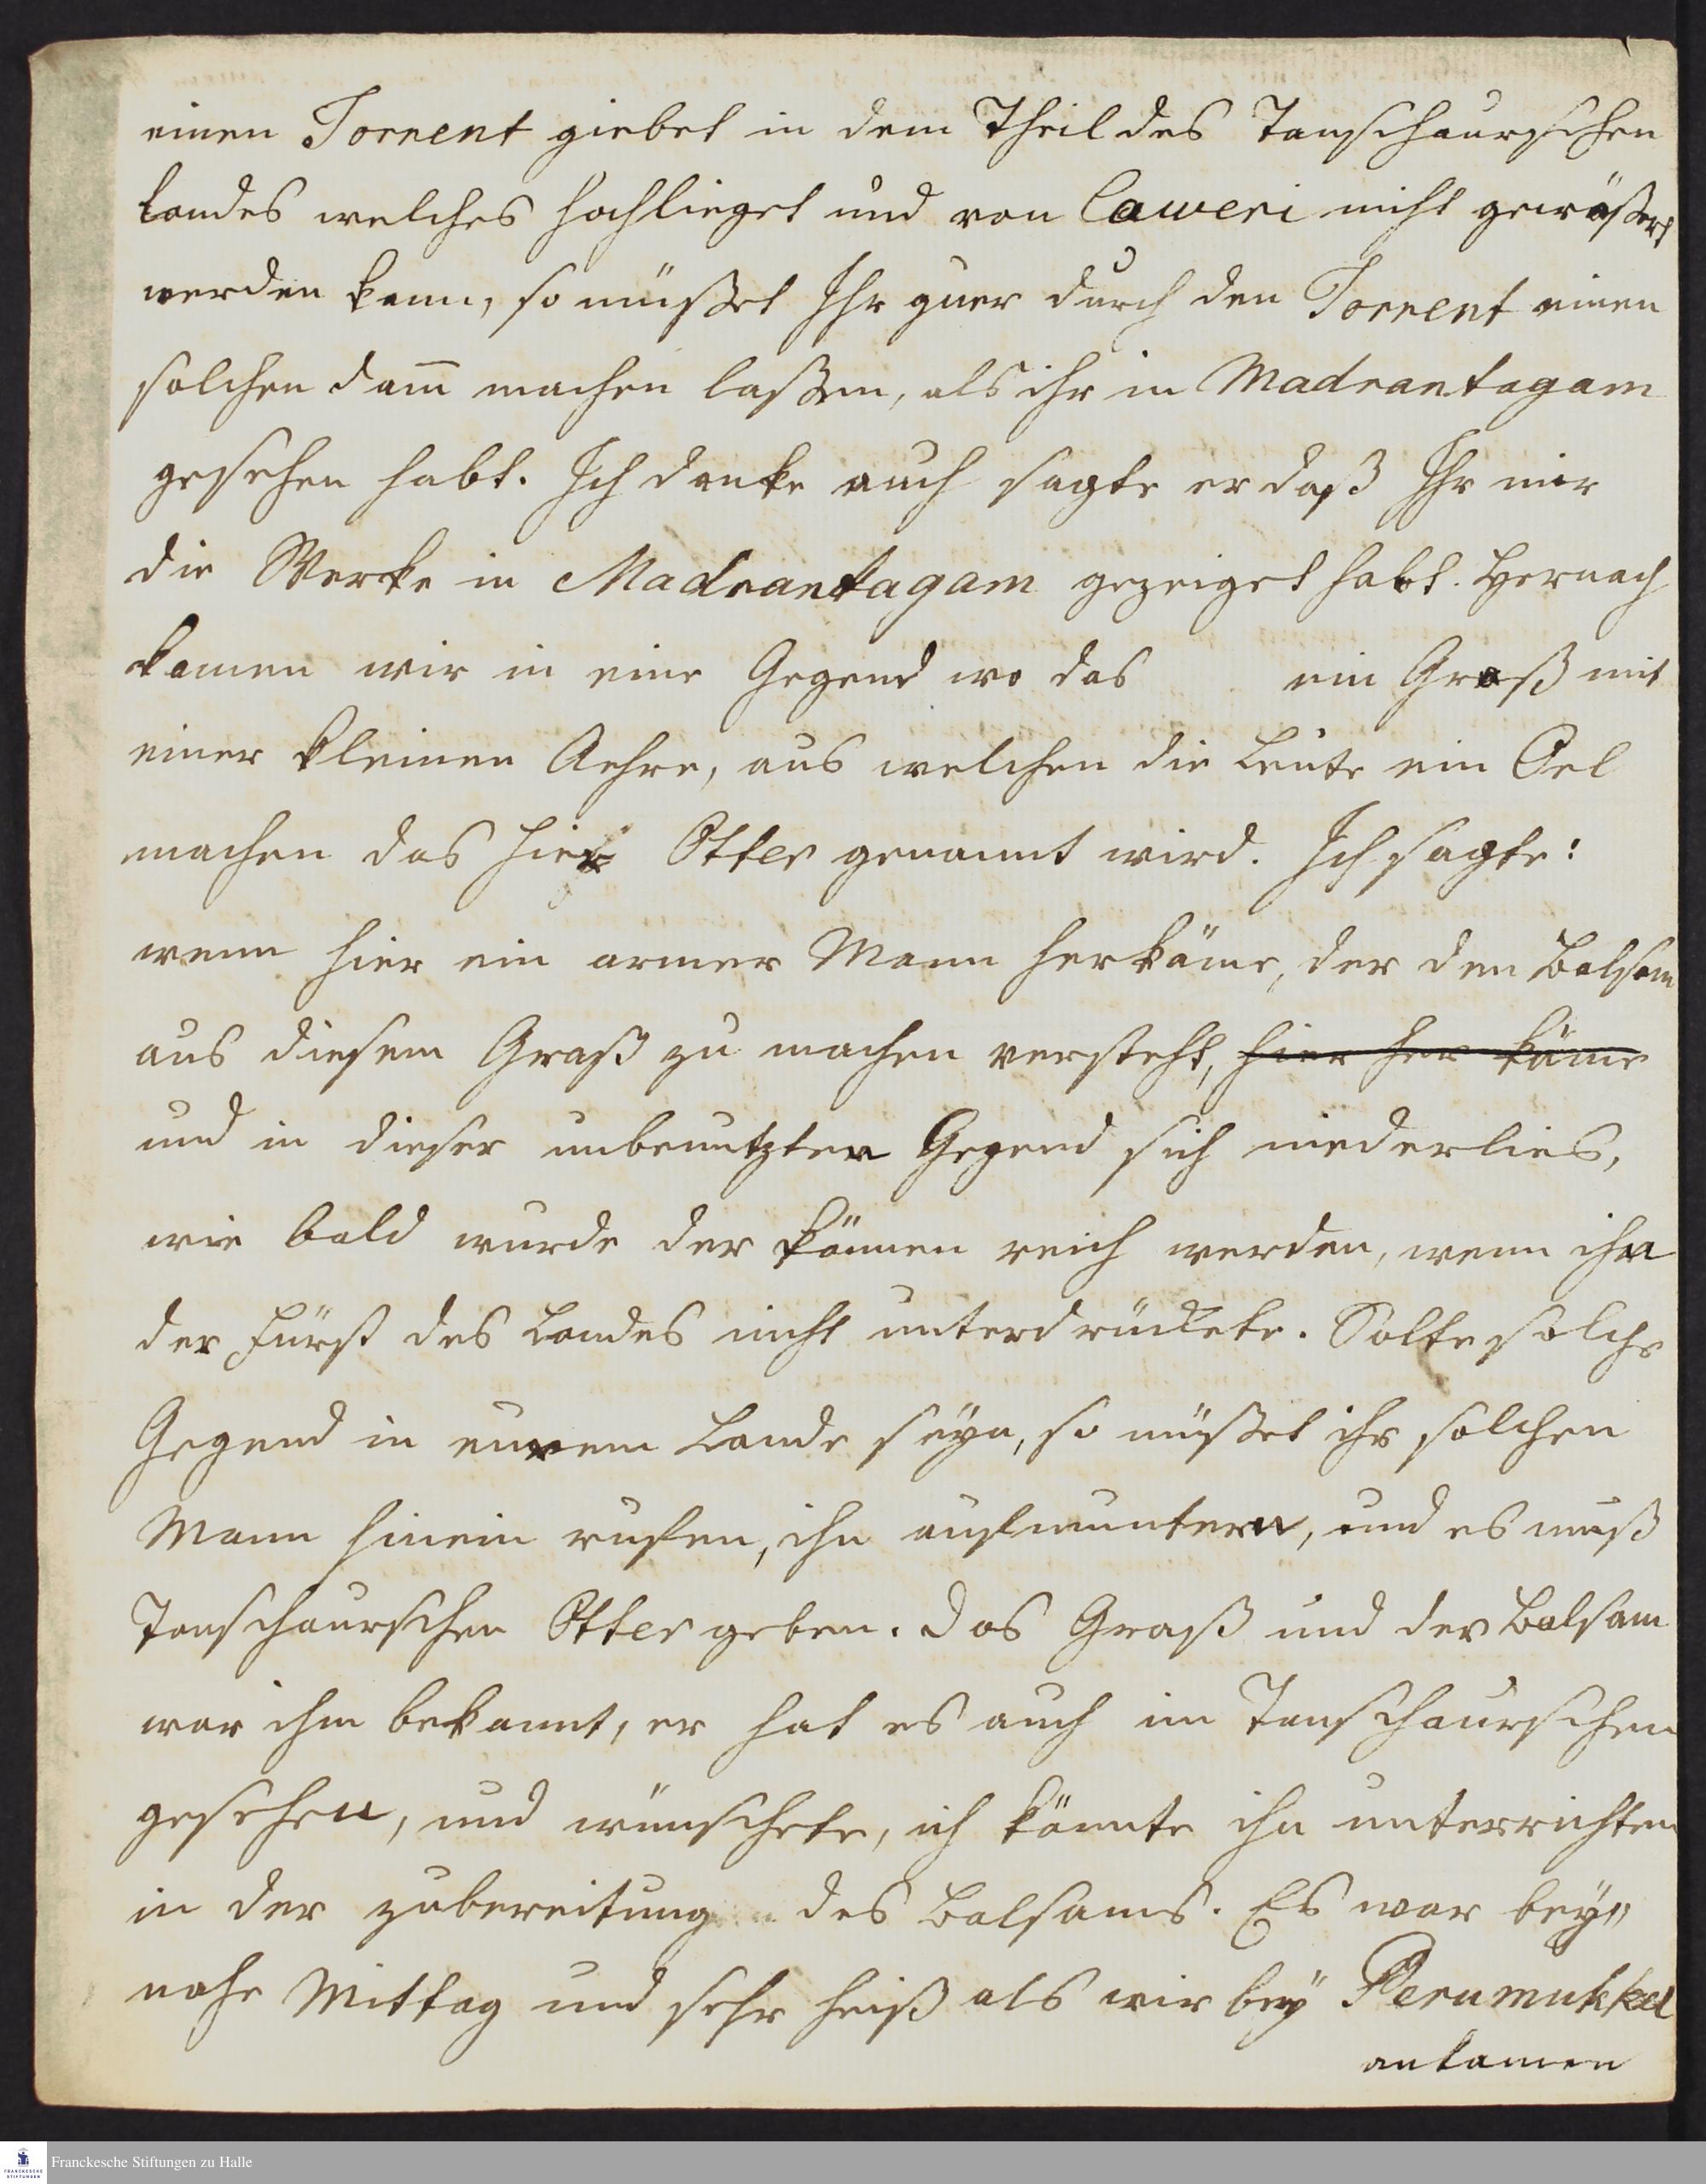 einen Torrent giebet in dem Theil des Tanschaurschen
Landes welches hochlieget und von Caweri nicht gewäßert
werden kann, so müßet Ihr quer durch den Torrent einen
solchen dam̄ machen laßen, als ihr in Madrantagam
gesehen habt. Ich danke auch sagte er daß Ihr mir
die Werke in Madrantagam gezeiget habt. Hernach
kamen wir in eine Gegend wo das ein Graß mit
einer kleinen Aehre, aus welchen die Leute ein Oel
machen das hier Otter genannt wird. Ich sagte:
wenn hier ein armer Mann herkäme, der den Balsam
aus diesem Graß zu machen versteht, hier her käme
und in dieser unbenutzten Gegend sich niederlies,
wie bald wurde der können reich werden, wenn ihn
der Fürst des Landes nicht unterdrückete. Solte solche
Gegend in eurem Lande seÿn, so müßet ihr solchen
Mann hinein rufen, ihn aufmuntern, und es muß
Tanschaurschen Otter geben. Das Graß und der Balsam
war ihm bekannt, er hat es auch im Tanschaurschen
gesehen, und wünschete, ich könnte ihn unterrichten
in der zubereitung des Balsams. Es war beÿ„
nahe Mittag und sehr heiß als wir beÿ Perumukkel
ankamen
Franckesche Stiftungen zu Halle